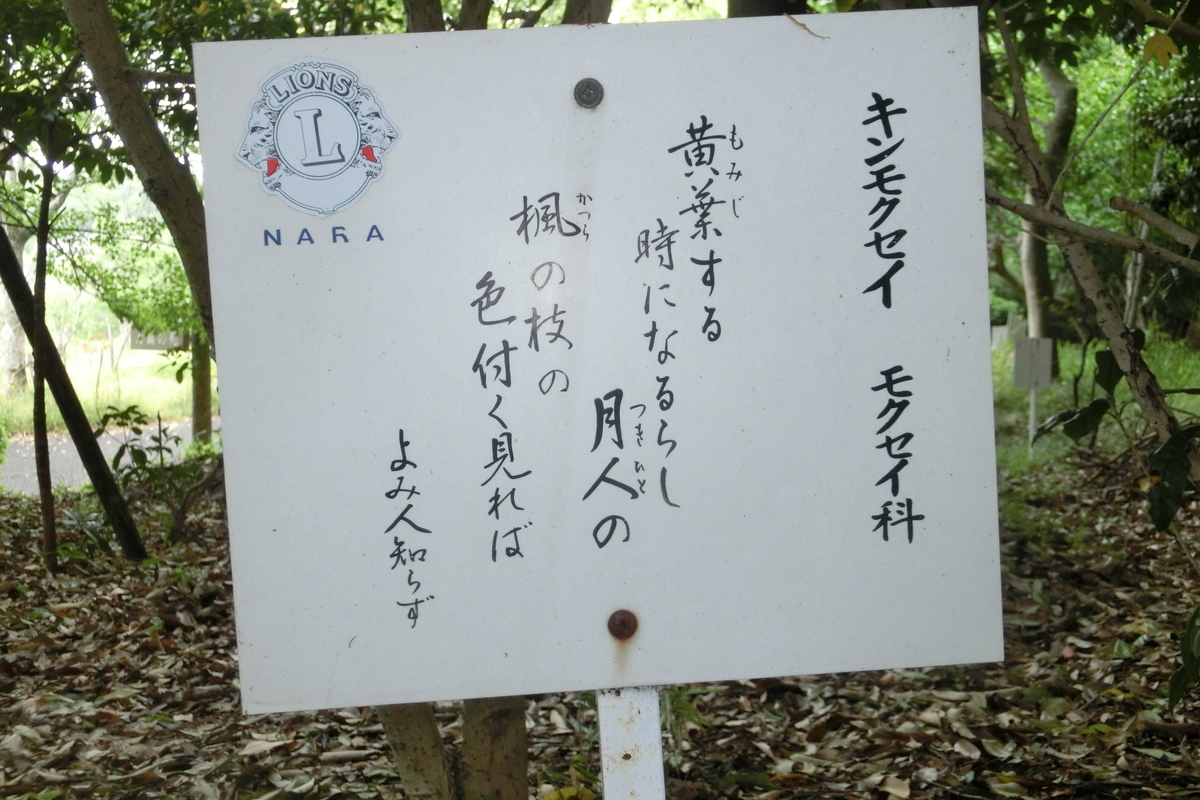 キンモクセイ　モクセイ科
黄葉する
もみじ
時になるらし
月人の
つきひと
楓の枝の
かつら
色付く見れば
よみ人知らず
LIONS
L
NARA